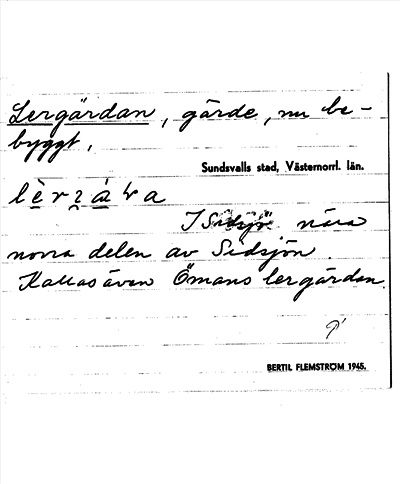 Lergärdan, gärde, nu be-
byggt.
Sundsvalls stad, Västernorrl. län.
I Sidsjö nära
norra delen av Sidsjön.
Kallas även Ömans lergärdan.
BERTIL FLEMSTRÖM 1945.